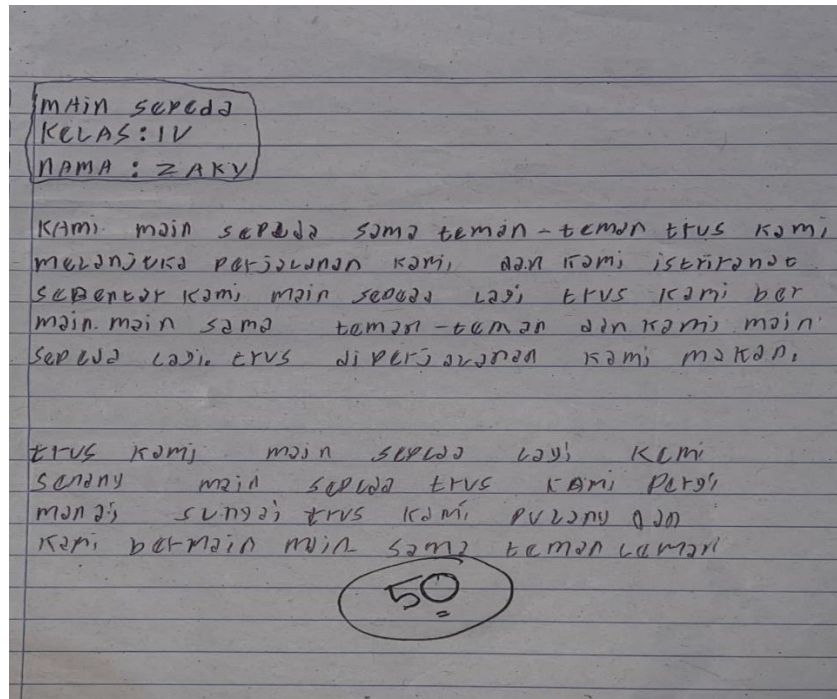 mAin sepeda
KELAS : IV
NAMA : ZAKY
KAmi main sepeda sama teman-teman trus kami
melanjutka perjalanan kami dan kami istriranat
sebentar kami main sepeda lagi trus kami ber
main main sama teman-teman dan kami main
sepeda lagi trus diperjalanan kami makan.
trus kami main sepeda lagi kami
senang main sepeda trus kami pergi
sungai trus kami pulang dan
kami bermain main sama teman
50